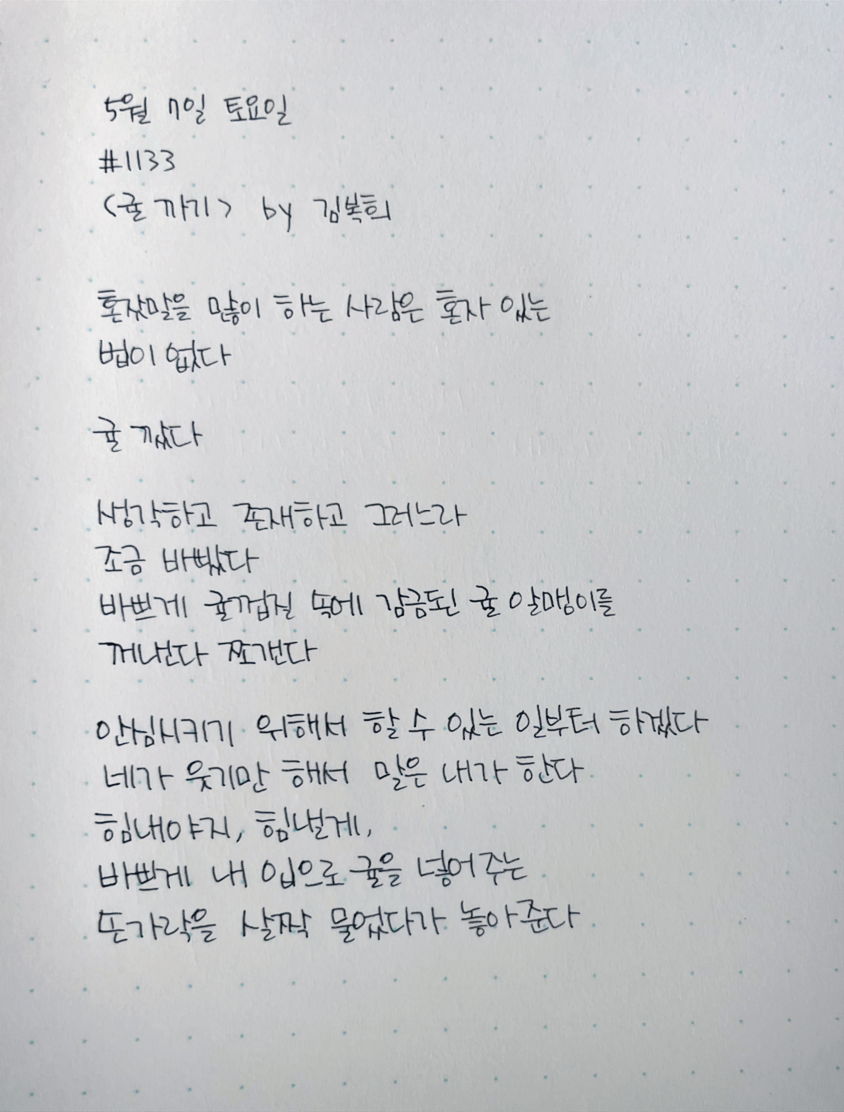 5월 7일 토요일
#1133
<귤 까기> by 김복희
혼잣말을 많이 하는 사람은 혼자 있는
법이 없다
귤 깠다
생각하고 존재하고 그러느라
조금 바빴다
바쁘게 귤껍질 속에 감금된 귤 알맹이를
꺼낸다 쪼갠다
안심시키기 위해서 할 수 있는 일부터 하겠다
네가 웃기만 해서 말은 내가 한다
힘내야지, 힘낼게,
바쁘게 내 입으로 귤을 넣어주는
손가락을 살짝 물었다가 놓아준다